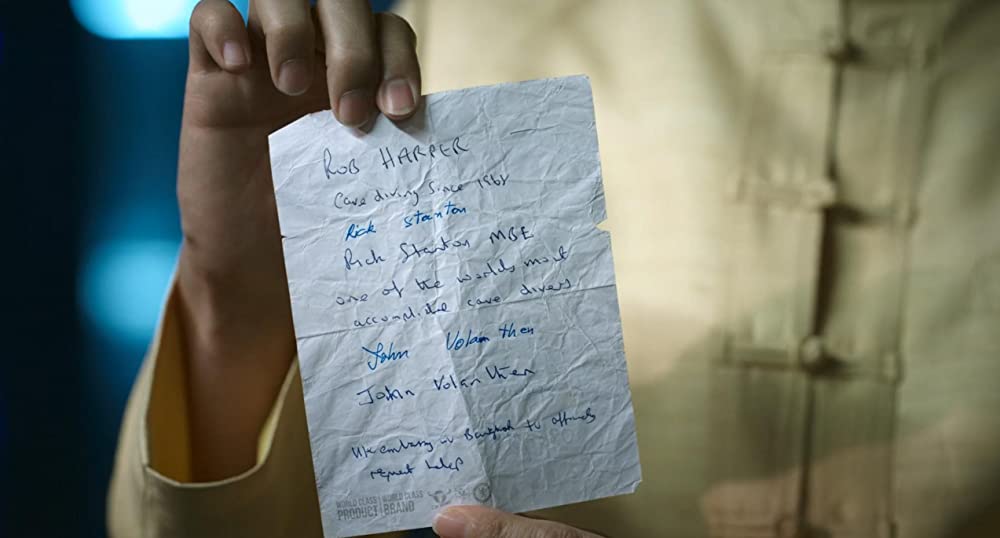 ROB HARPER
Cave diving since 1968
Rick Stanton
Rick Stanton MBE
one of the worlds most
accomplished cave divers
John Volanthen
John Volanthen
UK embassy in Bangkok to
request help
WORLD CLASS WORLD CLASS
PRODUCT BRAND